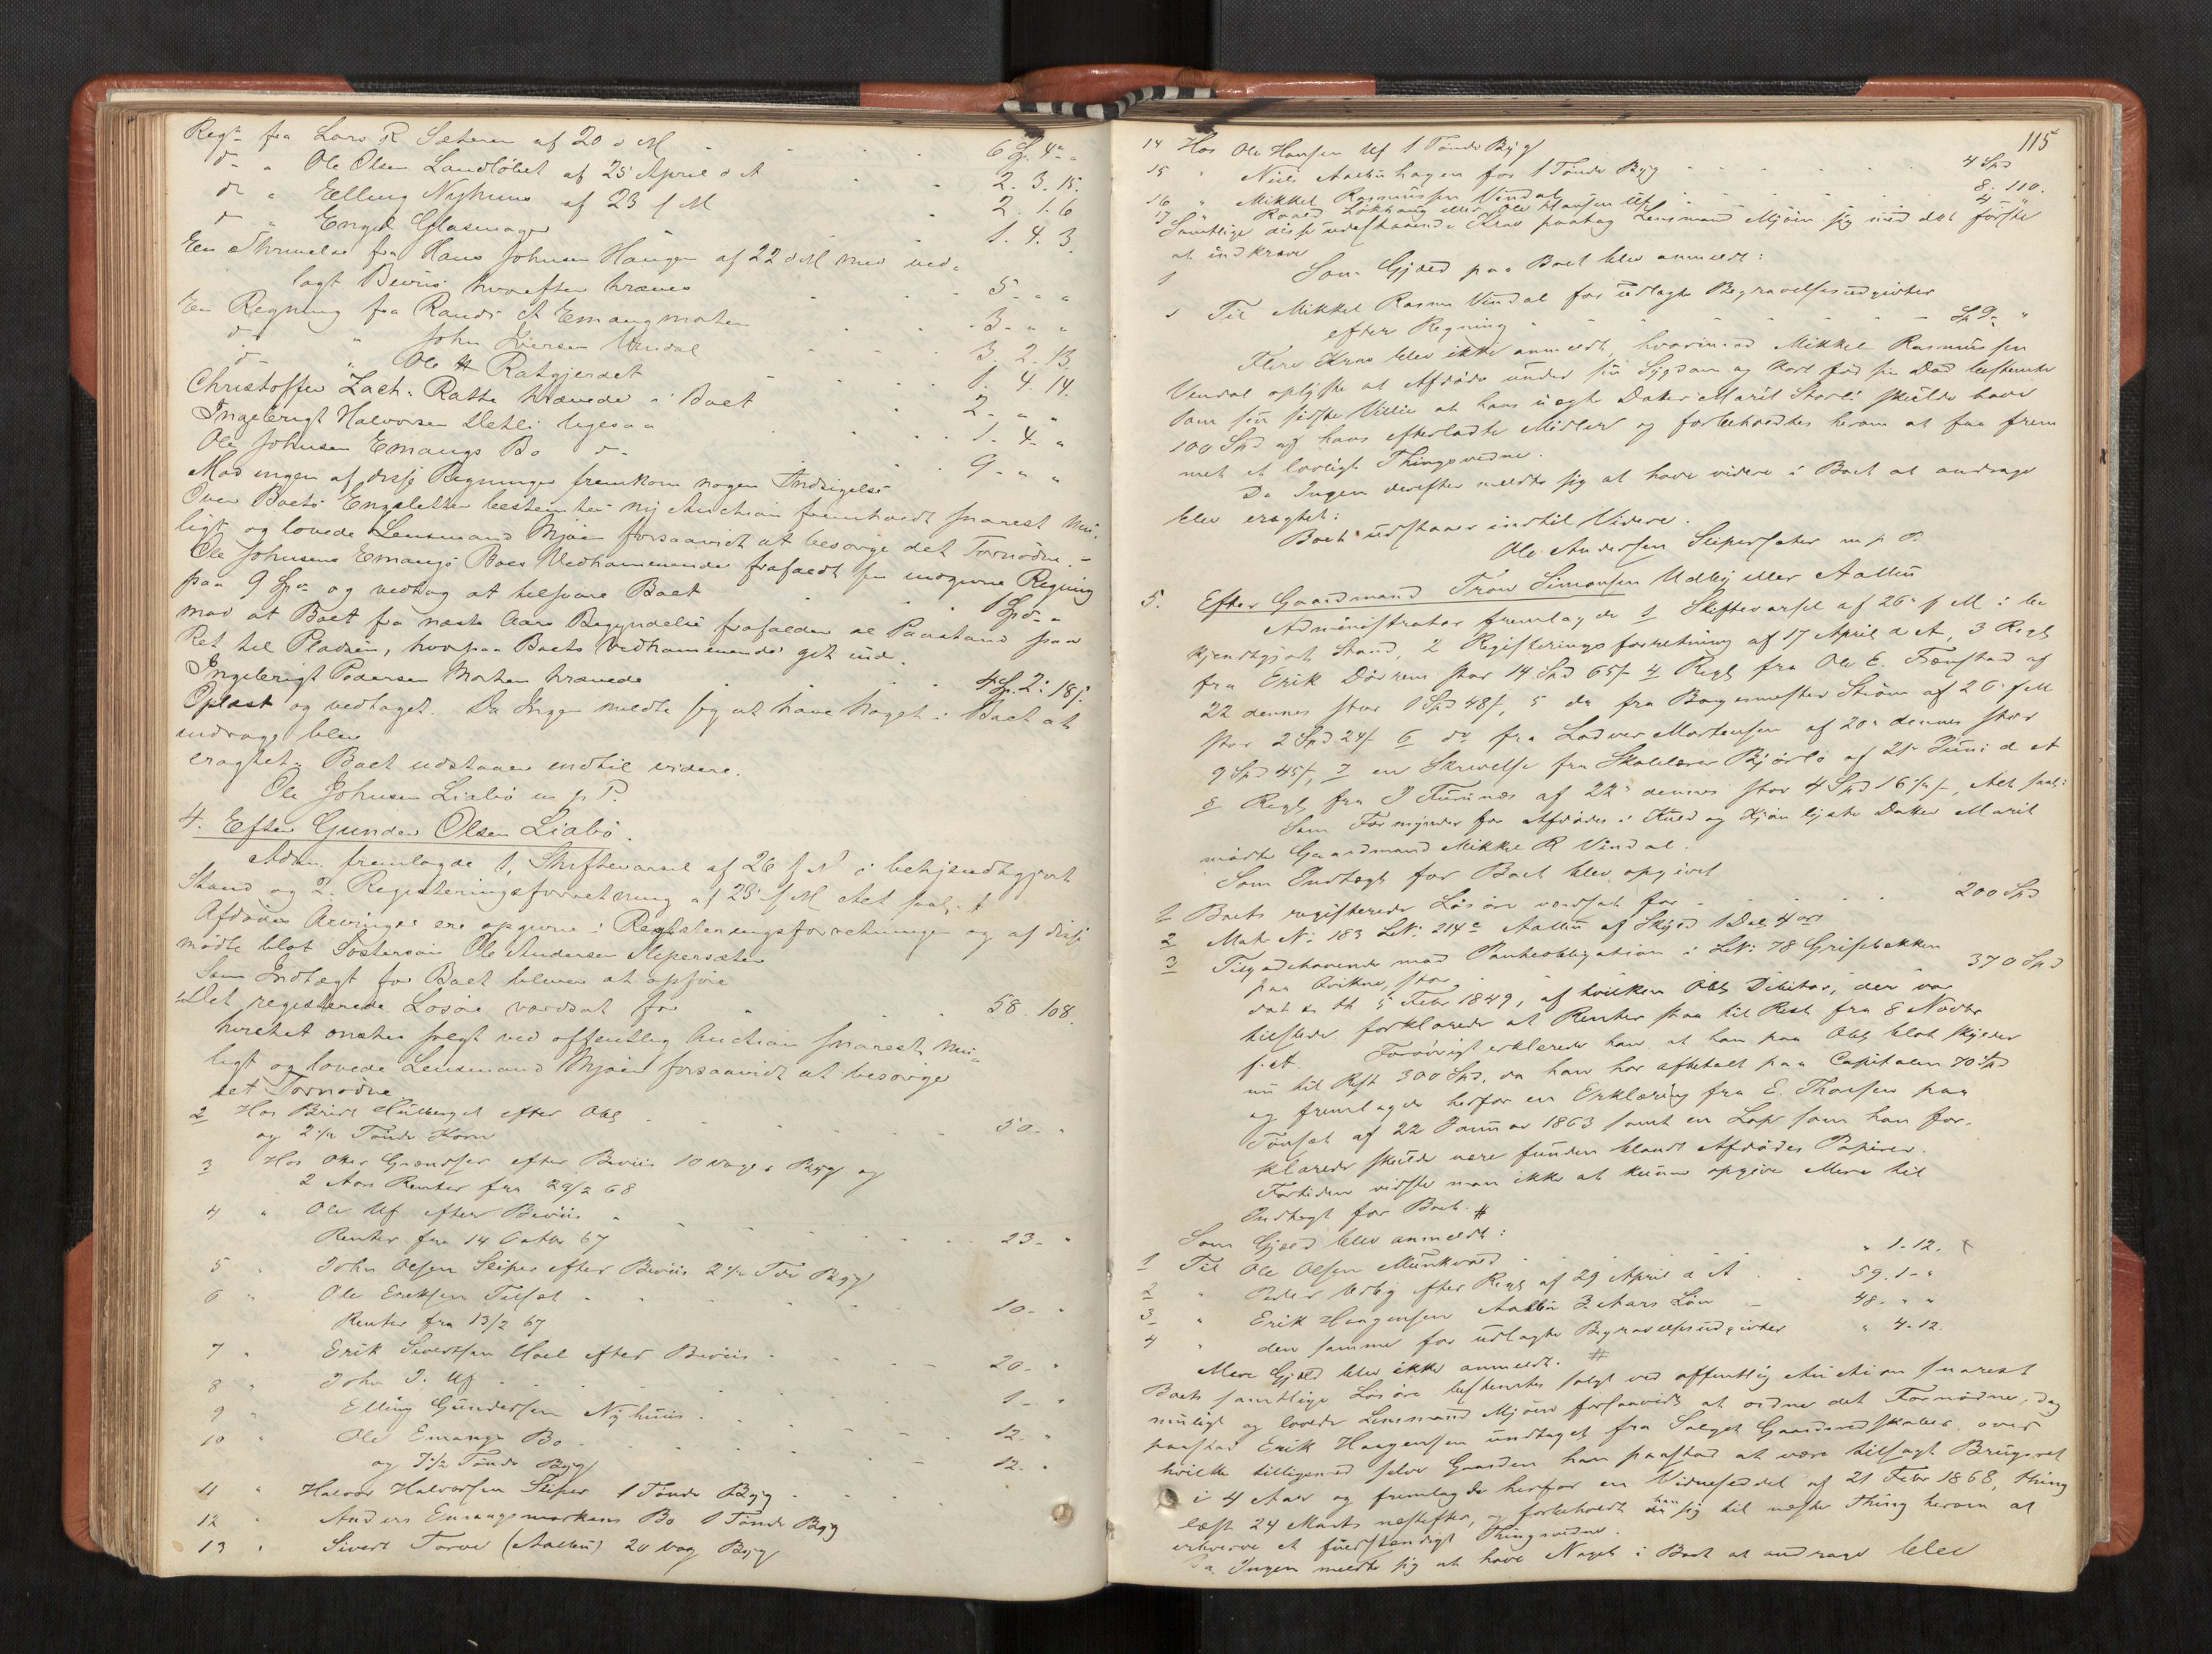 Regn fra Lars R Seteren af 20 d M 6 Sp. 4 "
do " Ole Olsen Landlöbet af 25 April d A 2. 3. 15.
do " Elling Nyhuus af 23 f M 2. 1. 6
do " Engel Glasmager 1. 4. 3.
En Skrivelse fra Hans Johnsen Haugen af 22 d M med ved-
lagt Beviis hvorefter kræves 5 - " "
En Regning fra Randi Emangmorken 3 - " "
do " John Iversen Vindal 3. 2. 13.
do " Ole Ratgjerdet 1. 4. 14.
Christoffer Zach: Ratte krævede i Boet 2 - " "
Ingebrigt Halvorsen Detli ligesaa 1. 4 - "
Ole Johnsen Emangs Bo do 9 - " "
Mod ingen af disse Regninger fremkom nogen Indsigelse
Over Boets Engsletter bestemtes ny Auction fremholdt snarest mu-
ligt og lovede Lensmand Mjøen forsaavidt at besørge det Fornødne. -
Ole Johnsens Emangs Boes Vedkommende frafaldt sin indgivne Regning
paa 9 Spd og vedtog at tilsvare Boet 1 Spd "
mod at Boet fra næste Aars Begyndelse frafalder al Paastand paa
Ret til Pladsen, hvorpaa Boets Vedkommende gik ind.
Ingebrigt Pedersen Morken krævede 4 Sp. 2: 18 s.
Oplæst og vedtaget. Da Ingen meldte sig at have Noget i Boet at
andrage blev
eragtet: Boet udstaaer indtil videre.
Ole Johnsen Liabö m p P.
4. Efter Gunder Olsen Liabö.
Adm. fremlagde 1, Skiftevarsel af 26 f M i bekjendtgjort
Stand og 2. Registeringsforretning af 23 f M Alt saal:
Afdödes Arvinger ere opgivne i Registeringsforretningen og af disse
mödte blot Søstersøn Ole Andersen Slipersæter
Som Indtægt for Boet bleven at opføre
1 Det registerede Løsøre værdsat for 58. 108.
hvilket ønskes solgt ved offentlig Auction snarest mu-
ligt og lovede Lensmand Mjøen forsaavidt at besørge
det Fornødne
2 Hos Berit Hulberget efter Obl 50 - "
og 2 1/2 Tönde Korn
3 Hos Oker Grændser efter Beviis 10 Voger Byg og
2 Aars Renter fra 29/2 68
4 " Ole Uf efter Beviis
Renter fra 14 Octbr 67 23 - "
5 " John Olsen Sliper efter Beviis 2 1/2 Tde Byg
6 " Ole Eriksen Tilset 10 - "
Renter fra 13/2 67
7 " Erik Sivertsen Hoel efter Beviis 20 - "
8 " John J. Uf 1 - "
9 " Elling Gundersen Nyhuus 12 - "
10 " Ole Emangs Bo 12 - "
og 7 1/2 Tönde Byg
11 " Halvor Halvorsen Sliper 1 Tönde Byg
12 " Anders Emangsmorkens Bo 1 Tönde Byg
13 " Sivert Torve (Aalbu) 20 Vog Byg
115
14 Hos Ole Hansen Uf 1 Tönde Byg
15 " Niels Aalbuhagen for 1 Tönde Byg 4 Spd
16 " Mikkel Rasmussen Vindal 8: 110.
17 " Roald Lökhaug eller Ole Hansen Uf 4 "
Samtlige disse udestaaende Krav paatog Lensmand Mjøen sig med det første
at indkræve
Som Gjæld paa Boet blev anmeldt:
1 Til Mikkel Rasm Vindal for udlagte Begravelsesudgifter
efter Regning Sp 9 - "
Flere Krav blev ikke anmeldt, hvorimod Mikkel Rasmussen
Vindal oplyste at Afdøde under sin Sygdom og kort før sin Død bestemte
som sin sidste Villie at hans uægte Datter Marit Storli skulde have
100 Spd af hans efterladte Midler og forbeholdtes herom at faa frem
met et lovligt Thingsvidne.
Da Ingen derefter meldte sig at have videre i Boet at andrage
blev eragtet:
Boet udstaaer indtil Videre.
Ole Andersen Slipersæter m p P.
5. Efter Gaardmand Tron Simonsen Uldlig eller Aalbu
Administrator fremlagde 1 Skiftevarsel af 26 f M i be
kjendtgjort Stand, 2 Registeringsforretning af 17 April d A, 3 Regg
fra Erik Dörrem stor 14 Spd 65 s 4 Regg fra Ole E. Fænstad af
22 dennes stor 1 Spd 48 s, 5 do fra Bogesmester Ström af 26 f M
stor 2 Spd 24 s 6 do fra Lodver Mortensen af 20 dennes stor
9 Spd 45 s, 7 en Skrivelse fra Skolelærer Bjørlo af 21 Juni d A
8 Regg fra J Furunæs af 22 dennes stor 4 Spd 16 s, Alt saal:
Som Formynder for Afdødes i Kuld og Kjøn lyste Datter Marit
mødte Gaardmand Mikkel R Vindal.
Som Indtægt for Boet blev opgivet
1 Boets registerede Løsøre værdsat for 200 Spd
2 Mat No 183 LNo 214 c Aalbu af Skyld 1 Dal 4 ort
3 Tilgodehavende mod Panteobligation i LNo 78 Grisbakken
paa Qvikne, stor 370 Spd
dat 5 Febr 1849, af hvilken Obl Debitor, der var
tilstede forklarede at Renter staa til Rest fra 8 Novbr
f. A. Forøvrigt erklærede han at han paa Obl blot skylder
nu til Rest 300 Spd, da han har afbetalt paa Capitalen 70 Spd
og fremlagde herfor en Erklæring fra E. Thoresen paa
Tönset af 22 Januar 1863 samt en Lap som han for-
klarede skulde være funden blandt Afdødes Papirer.
Fortiden vidste man ikke at kunne opgive Mere til
Indtægt for Boet. #
Som Gjæld blev anmeldt:
1 Til Ole Olsen Munkvold " 1. 12.
2 " Peder Uldlig efter Regg af 29 April d A 59. 1 - "
3 " Erik Haagensen Aalbu 3 Aars Løn 48. " "
4 " den samme for udlagte Begravelsesudgifter " 4. 12.
Mere Gjæld blev ikke anmeldt. #
Boets samtlige Løsøre bestemtes solgt ved offentlig Auction snarest
muligt og lovede Lensmand Mjøen forsaavidt at ordne det Fornødne, dog
paastod Erik Haagensen undtaget fra Salget Gaardsredskaber, over
hvilke tilligemed selve Gaarden han paastod at være tilsagt Brugsret
i 4 Aar og fremlagde herfor en Vidneseddel af 21 Febr 1868, thing
læst 24 Marts næstefter, og forbeholdt han sig til næste Thing herom at
erhverve et fuldstændigt Thingsvidne.
Da Ingen meldte sig at have Noget i Boet at andrage blev